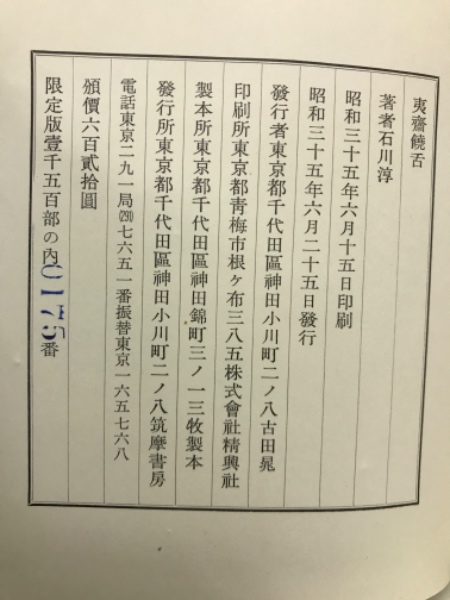 夷齋饒舌
著者石川淳
昭和三十五年六月十五日印刷
昭和三十五年六月二十五日發行
發行者東京都千代田區神田小川町二ノ八古田晁
印刷所東京都靑梅市根ヶ布三八五株式會社精興社
製本所東京都千代田區神田錦町三ノ一三牧製本
發行所東京都千代田區神田小川町二ノ八筑摩書房
電話東京二九一局(291)七六五一番振替東京一六五七六八
頒價六百貳拾圓
限定版壹千五百部の內0175番